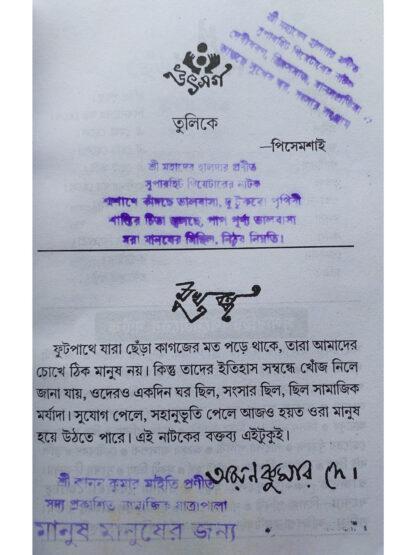 উৎসর্গ
তুলিকে
—পিসেমশাই
শ্রী মহাদেব হালদার প্রণীত
সুপারহিট থিয়েটারের নাটক
শ্মশানে কাঁদছে ভালবাসা, দু টুকরো পৃথিবী
শান্তির চিতা জ্বলছে, পাপ পূণ্য ভালবাসা
মরা মানুষের মিছিল, নিঠুর নিয়তি।
মুখবন্ধ
ফুটপাথে যারা ছেঁড়া কাগজের মত পড়ে থাকে, তারা আমাদের
চোখে ঠিক মানুষ নয়। কিন্তু তাদের ইতিহাস সম্বন্ধে খোঁজ নিলে
জানা যায়, ওদেরও একদিন ঘর ছিল, সংসার ছিল, ছিল সামাজিক
মর্যাদা। সুযোগ পেলে, সহানুভূতি পেলে আজও হয়ত ওরা মানুষ
হয়ে উঠতে পারে। এই নাটকের বক্তব্য এইটুকুই।
কুমার দে।
শ্রী স্বপন কুমার মাইতি প্রণীত
সদ্য প্রকাশিত সামাজিক যাত্রাপালা
মানুষ মানুষের জন্য